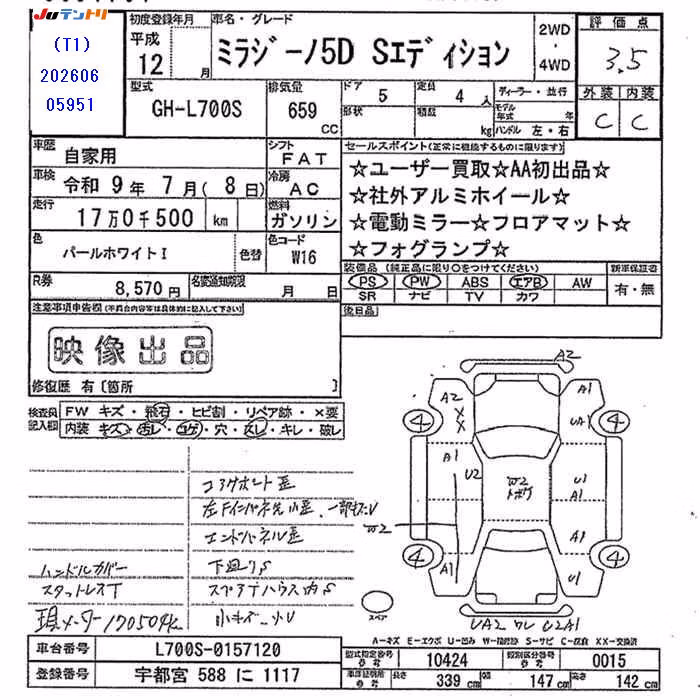 JUテントリ
(T1)
202606
05951
初度登録年月
平成
12 月
車名・グレード
ミラジーノ5D Sエディション
2WD
・
4WD
評価点
3.5
外装 内装
C C
型式
GH-L700S
排気量
659
CC
ドア 5
形状
定員 4 人
積載 kg
ディーラー・並行
モデル年式 年
ハンドル 左・右
車歴 自家用
シフト FAT
車検 令和 9年 7月( 8日)
冷房 AC
走行 17万0千500 km
燃料 ガソリン
色 パールホワイトI 色替
色コード W16
R券 8,570円
名変通知期限 月 日
セールスポイント(正常に機能するものに限ります)
☆ユーザー買取☆AA初出品☆
☆社外アルミホイール☆
☆電動ミラー☆フロアマット☆
☆フォグランプ☆
装備品(純正品に限り○をつけてください)
PS PW ABS エアB AW
SR ナビ TV カワ
新車保証書
有・無
後日品
注意事項申告欄(不具合内容等は具体的に記入して下さい)
映像出品
修復歴 有〔箇所 〕
検査員記入欄
FW キズ・飛石・ヒビ割・リペア跡・×要
内装 キズ・汚レ・コゲ・穴・スレ・キレ・破レ
コアサポート歪
左Fインパネ先小歪、一部切レ
エンドパネル歪
下廻りS
スペアTハウス内S
小キズ、小U
ハンドルカバー
スタットレスT
現メーター170504K
A2
A2
X
X
A1
A1
UA1
4
4
A1
U2
W2
トボケ
U1
A1
W2
A1
A1
U1
4
4
スペア
UA2 ワレ U2A1
A-キズ E-エクボ U-凹み W-補修跡 S-サビ C-腐食 XX-交換済
車台番号 L700S-0157120
登録番号 宇都宮 588 に 1117
型式指定番号 参考 10424
類別区分番号 参考 0015
車庫証明用 参考
長さ 339 cm
幅 147 cm
高さ 142 cm